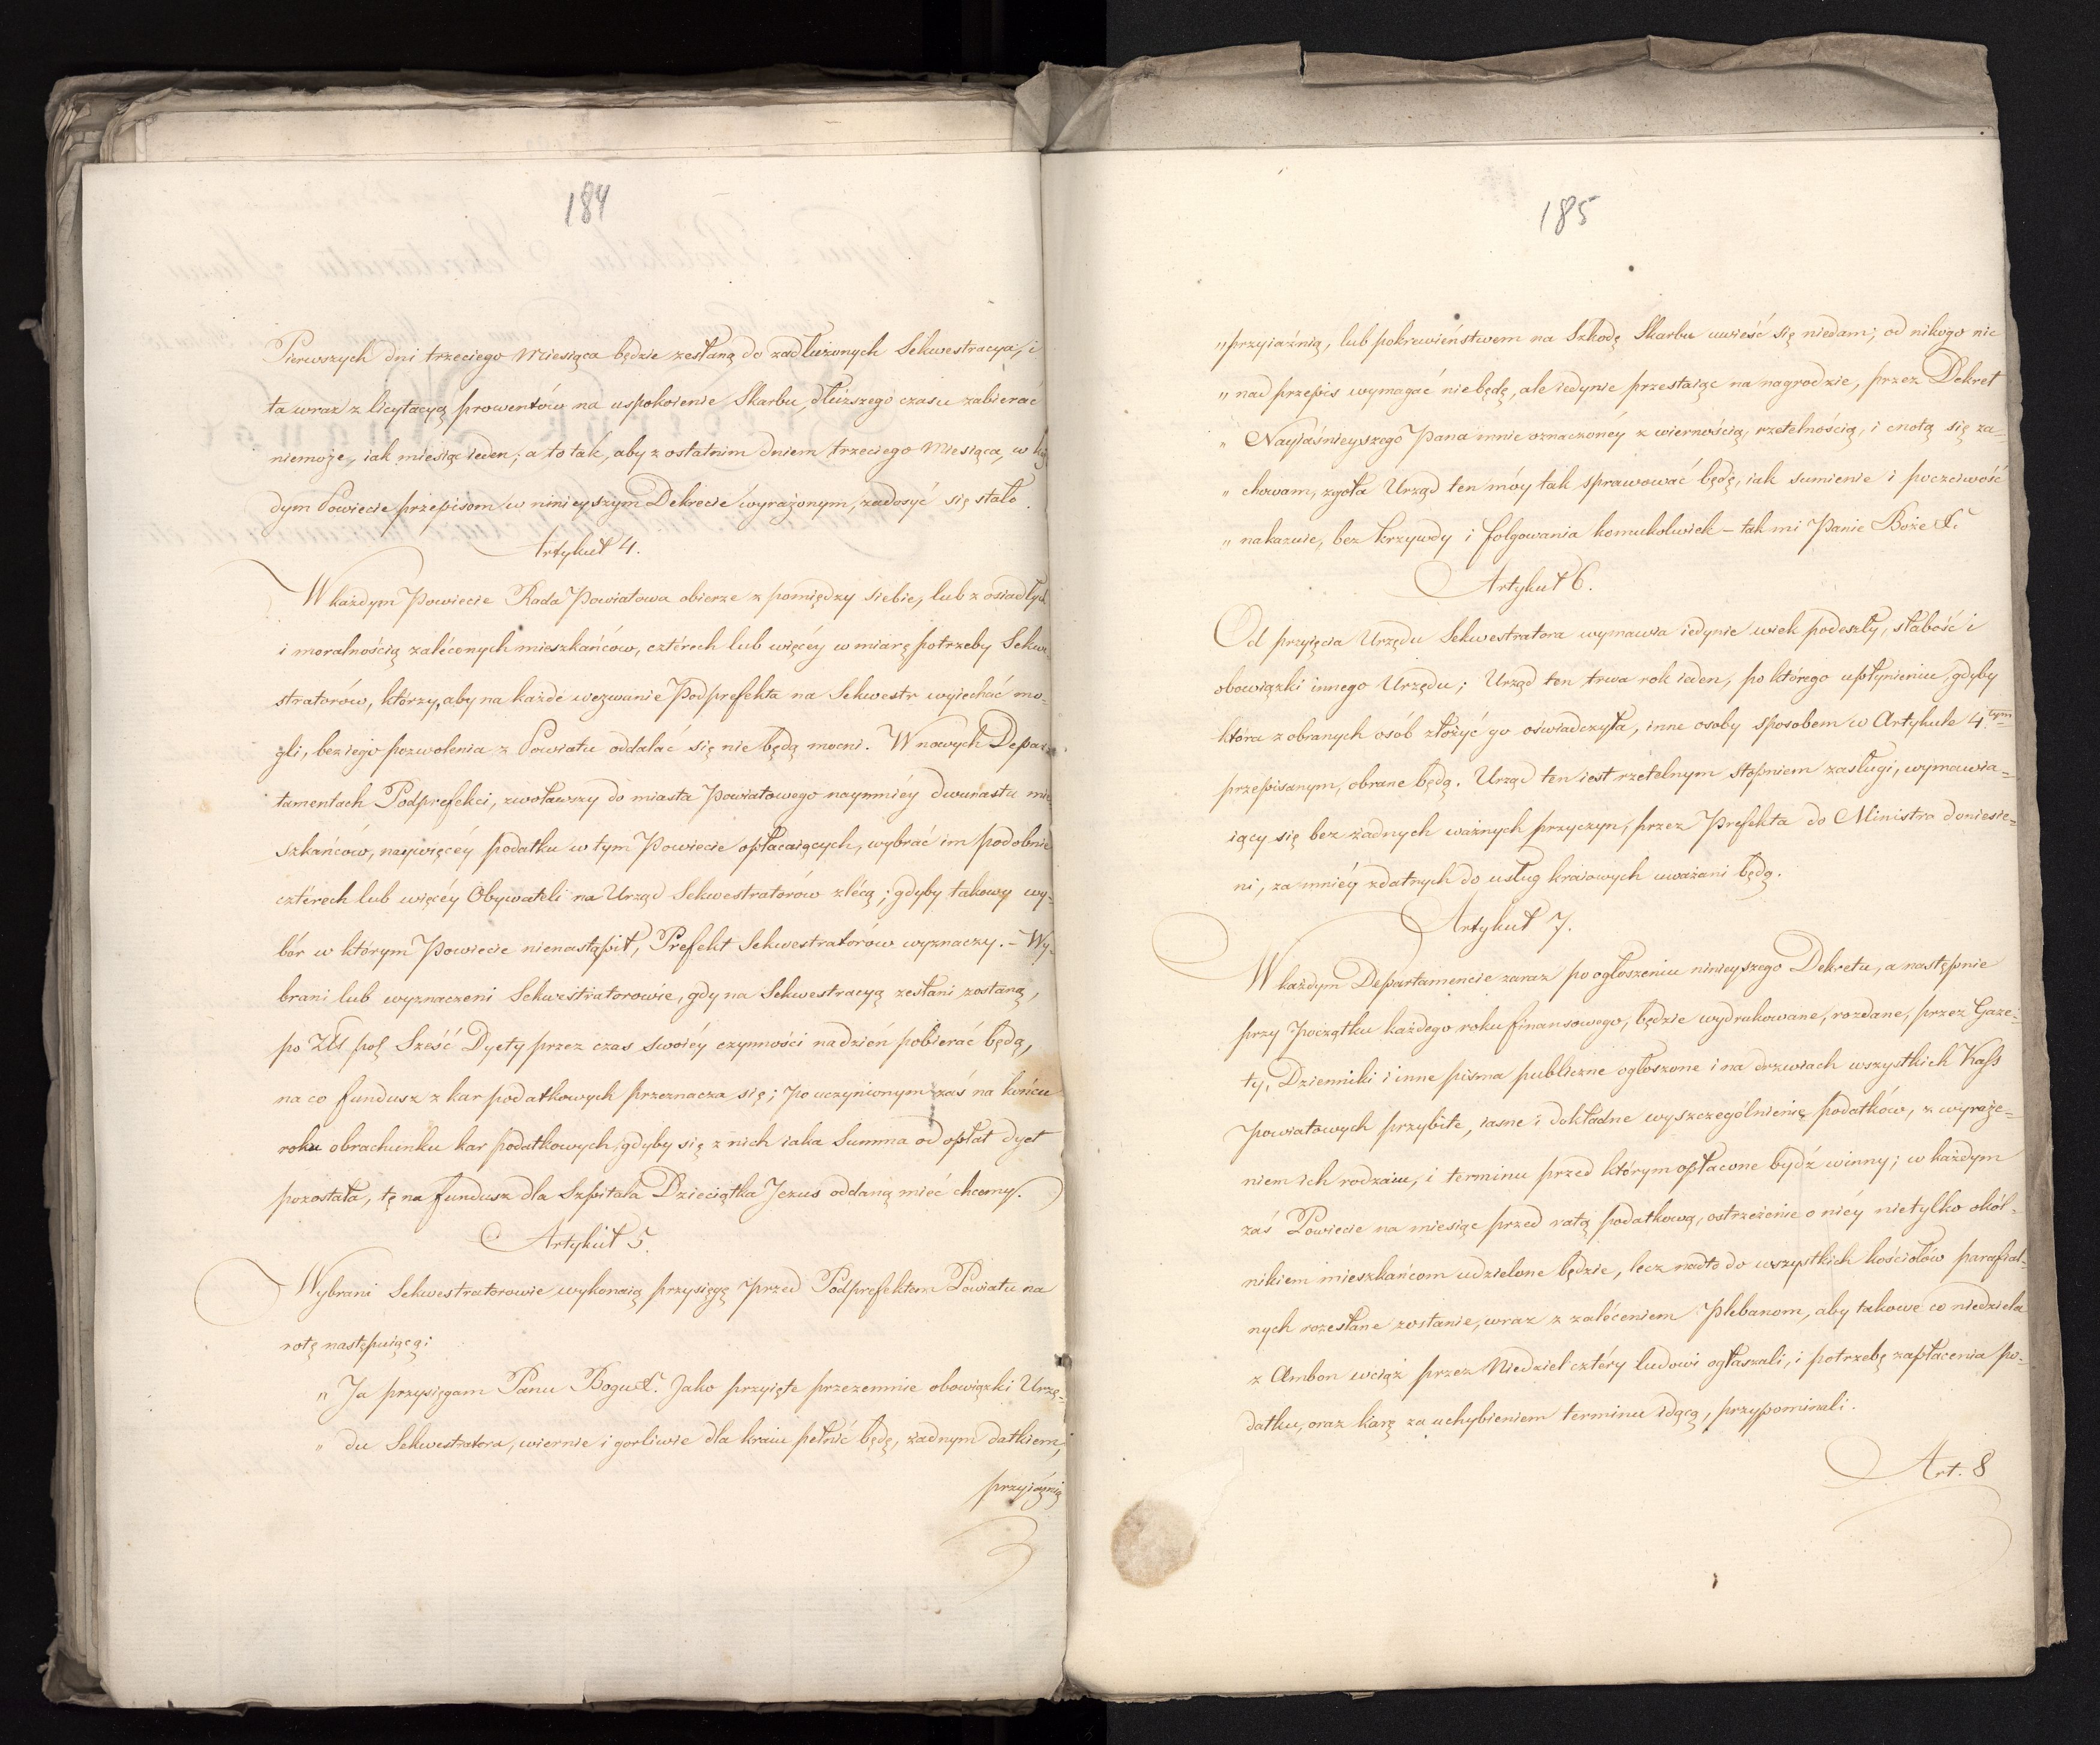 184
Pierwszych dni trzeciego Miesiąca będzie zesłaną do zadłużonych Sekwestracya, i
ta wraz z licytacyą prowentów na uspokoienie Skarbu, dłuższego czasu zabierać
niemoże, iak miesiąc ieden; a to tak, aby z ostatnim dniem trzeciego Miesiąca, w każ
dym Powiecie przepisom w ninieyszym Dekrecie wyrażonym, zadosyć się stało.
Artykuł 4.
W każdym Powiecie Rada Powiatowa obierze z pomiędzy siebie, lub z osiadłych
i moralnością zaléconych mieszkańców, cztérech lub więcéy w miarę potrzeby Sekwe-
stratorów, którzy, aby na każde wezwanie Podprefekta na Sekwestr wyiechać mo-
gli, bez iego pozwolenia z Powiatu oddalać się nie będą mocni. W nowych Depar-
tamentach Podprefekci, zwoławszy do miasta Powiatowego naymniéy dwunastu mie-
szkańców, naywięcéy podatku w tym Powiecie opłacaiących, wybrać im podobnie
cztérech lub więcéy Obywateli na Urząd Sekwestratorów zlécą; gdyby takowy wy-
bór w którym Powiecie nienastąpił, Prefekt Sekwestratorów wyznaczy. - Wy-
brani lub wyznaczeni Sekwestratorowie, gdy na Sekwestracyą zesłani zostaną,
po Złł pol Sześć Dyety przez czas swoiéy czynności na dzień pobierać będą,
na co fundusz z kar podatkowych przeznacza się; po uczynionym zaś na końcu
roku obrachunku kar podatkowych, gdyby się z nich iaka Summa od opłat dyet
pozostała, tę na fundusz dla Szpitala Dzieciątka Jezus oddaną mieć chcemy.
Artykuł 5.
Wybrani Sekwestratorowie wykonaią przysięgę przed Podprefektem Powiatu na
rotę następuiącą:
„ Ja przysięgam Panu Bogu &. Jako przyięte przezemnie obowiązki Urzę-
„ du Sekwestratora, wiernie i gorliwie dla kraiu pełnić będę, żadnym datkiem,
przyiaźnią
185
„ przyiaźnią, lub pokrewieństwem na Szkodę Skarbu uwieść się niedam; od nikogo nic
„ nad przepis wymagać niebędę, ale iedynie przestaiąc na nagrodzie, przez Dekret
„ Nayjaśnieyszego Pana mnie oznaczonéy z wiernością, rzetelnością, i cnotą się za-
„ chowam, zgoła Urząd ten móy tak sprawować będę, iak sumienie i poczciwość
„ nakazuie, bez krzywdy i folgowania komukolwiek – tak mi Panie Boże &.
Artykuł 6.
Od przyięcia Urzędu Sekwestratora wymawia iedynie wiek podeszły, słabość i
obowiązki innego Urzędu; Urząd ten trwa rok ieden, po którego upłynieniu, gdyby
która z obranych osób złożyć go oświadczyła, inne osoby sposobem w Artykule 4.tym
przepisanym, obrane będą. Urząd ten iest rzetelnym stopniem zasługi, wymawia-
iący się bez żadnych ważnych przyczyn, przez Prefekta do Ministra doniesie-
ni, za mniéy zdatnych do usług kraiowych uważani będą.
Artykuł 7.
W każdym Departamencie zaraz po ogłoszeniu ninieyszego Dekretu, a następnie
przy początku każdego roku finansowego, będzie wydrukowane, rozdane, przez Gaze-
ty, Dzienniki i inne pisma publiczne ogłoszone i na drzwiach wszystkich Kass
Powiatowych przybite, iasne i dokładne wyszczególnienie podatków, z wyraże-
niem ich rodzaiu, i terminu przed którym opłacone bydź winny; w każdym
zaś Powiecie na miesiąc przed ratą podatkową, ostrzeżenie o niéy nietylko okól-
nikiem mieszkańcom udzielone będzie, lecz nadto do wszystkich kościołów parafial-
nych rozesłane zostanie, wraz z zaléceniem Plebanom, aby takowe co niedziela
z Ambon wciąż przez Niedziel cztéry ludowi ogłaszali, i potrzebę zapłacenia po-
datku, oraz karę za uchybieniem terminu idącą, przypominali.
Art. 8